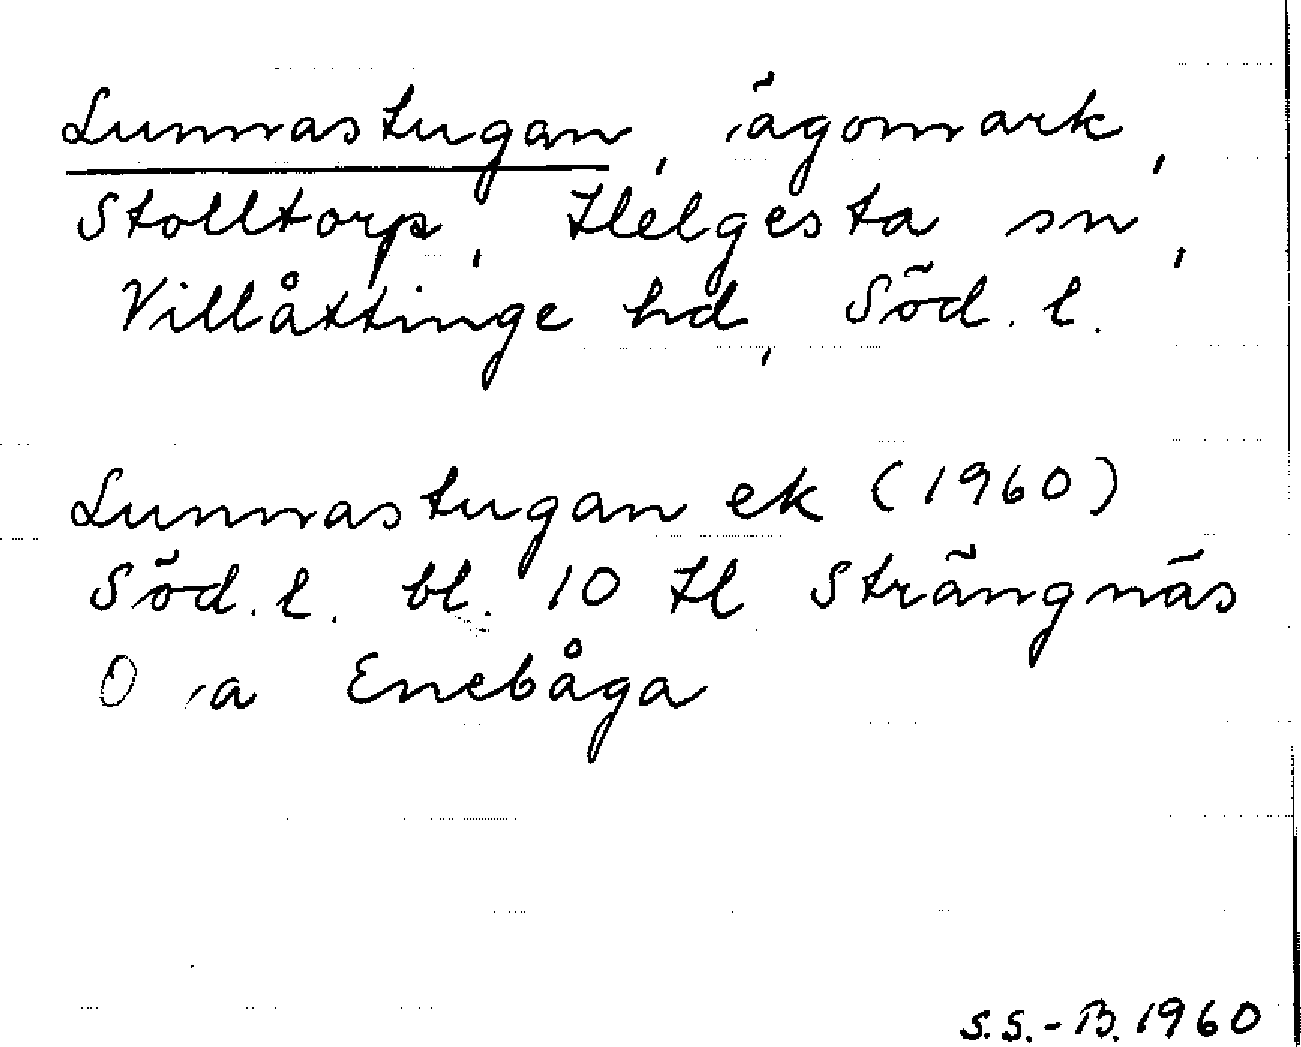 Lunnastugan, ägomark,
Stolltorp, Helgesta sn,
Villåttinge hd, Söd. l.
Lunnastugan ek (1960)
Söd. l. bl. 10 H Strängnäs
O a Enebåga
S.S.-B. 1960